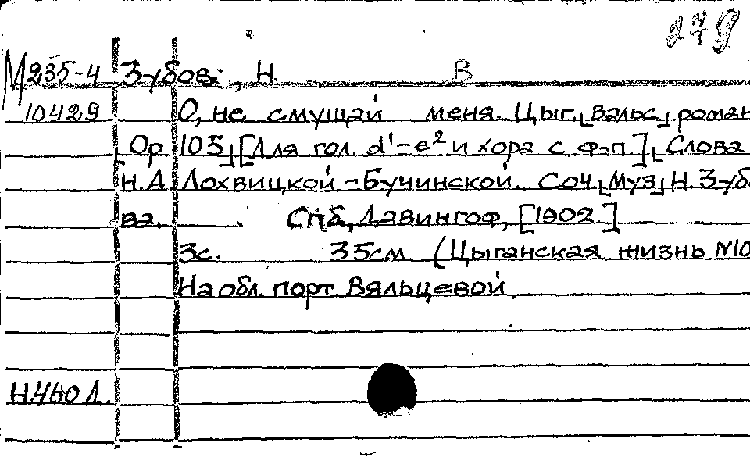 279
М235-4 Зубов, Н. В
10429 О, не смущай меня. Цыг. вальс, роман
Ор 105, [Для гол. d'-e² и хора с ф-п.], Слова
Н.А. Лохвицкой-Бучинской. Соч. муз. Н. Зуб
ва. Спб, Давингоф, [1902]
3с. 35см (Цыганская жизнь №10
На обл. порт Вяльцевой